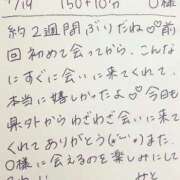 7/19 150+10分 O様
約2週間ぶりだね♡前
回初めて会ってから、こんな
にすぐに会いに来てくれて、
本当に嬉しかったよ♡今日も
県外からわざわざ会いに来て
くれてありがとう(*ˊᵕˋ*)また、
O様に会えるのを楽しみにして